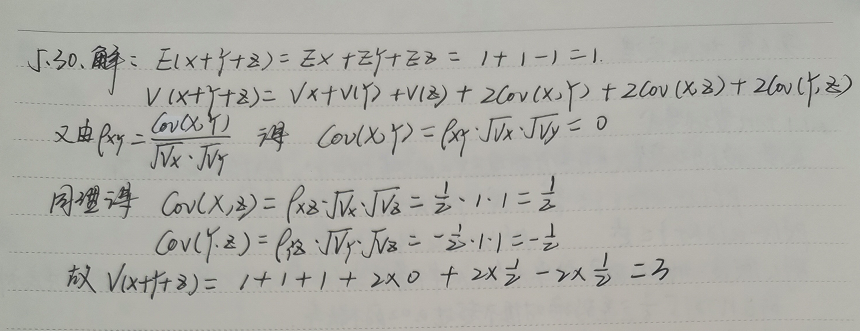 5.30. 解: E(X+Y+Z) = EX + EY + EZ = 1 + 1 - 1 = 1.
V(X+Y+Z) = VX + V(Y) + V(Z) + 2Cov(X,Y) + 2Cov(X,Z) + 2Cov(Y,Z)
又由 ρxy = Cov(X,Y) / √Vx · √Vy 得 Cov(X,Y) = ρxy · √Vx · √Vy = 0
同理得 Cov(X,Z) = ρxz · √Vx · √Vz = 1/2 · 1 · 1 = 1/2
Cov(Y.Z) = ρyz · √Vy · √Vz = -1/2 · 1 · 1 = -1/2
故 V(X+Y+Z) = 1 + 1 + 1 + 2×0 + 2×1/2 - 2×1/2 = 3